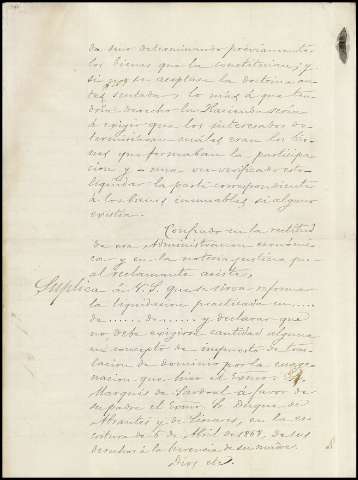 da sino determinando préviamente
los bienes que la constituian; y
si por se aceptase la doctrina an-
tes sentada, lo más á que ten-
dría derecho la Hacienda sería
á exigir que los interesados de-
terminasen cuáles eran los bie-
nes que formaban la participa-
cion y una vez verificado esto
liquidar la parte correspondiente
á los bienes inmuebles si alguno
existia.
Confiado en la rectitud
de esa Administracion económi-
ca y en la notoria justicia que
al reclamante asiste,
Suplica á V.S. que se sirva reformar
la liquidacion practicada en.....
de ...... de ...... y declarar que
no debe exigirse cantidad alguna
en concepto de impuesto de tras-
lacion de dominio por la enage-
nacion que hizo el Excmo. Sr.
Marqués de Sardoal á favor de
su padre el Excmo. Sr. Duque de
Abrantes y de Linares, en la es-
critura de 5 de Abril de 1867, de sus
derechos á la herencia de su madre.
Dios etc.